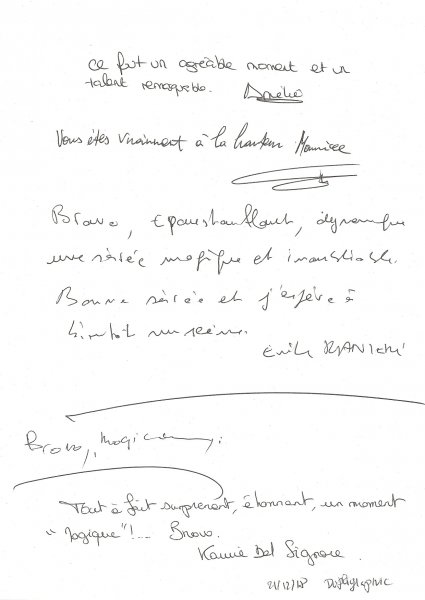 ce fut un agréable moment et un
talent remarquable. Amélie
Vous êtes vraiment à la hauteur Maurice
Bravo, époustouflant, dynamique
une soirée magique et inoubliable.
Bonne soirée et j'espère à
bientôt sur scène.
Emile
Bravo, Magicien
Tout à fait surprenant, étonnant, un moment
"magique"!... Bravo.
Del Signore
21/12/18